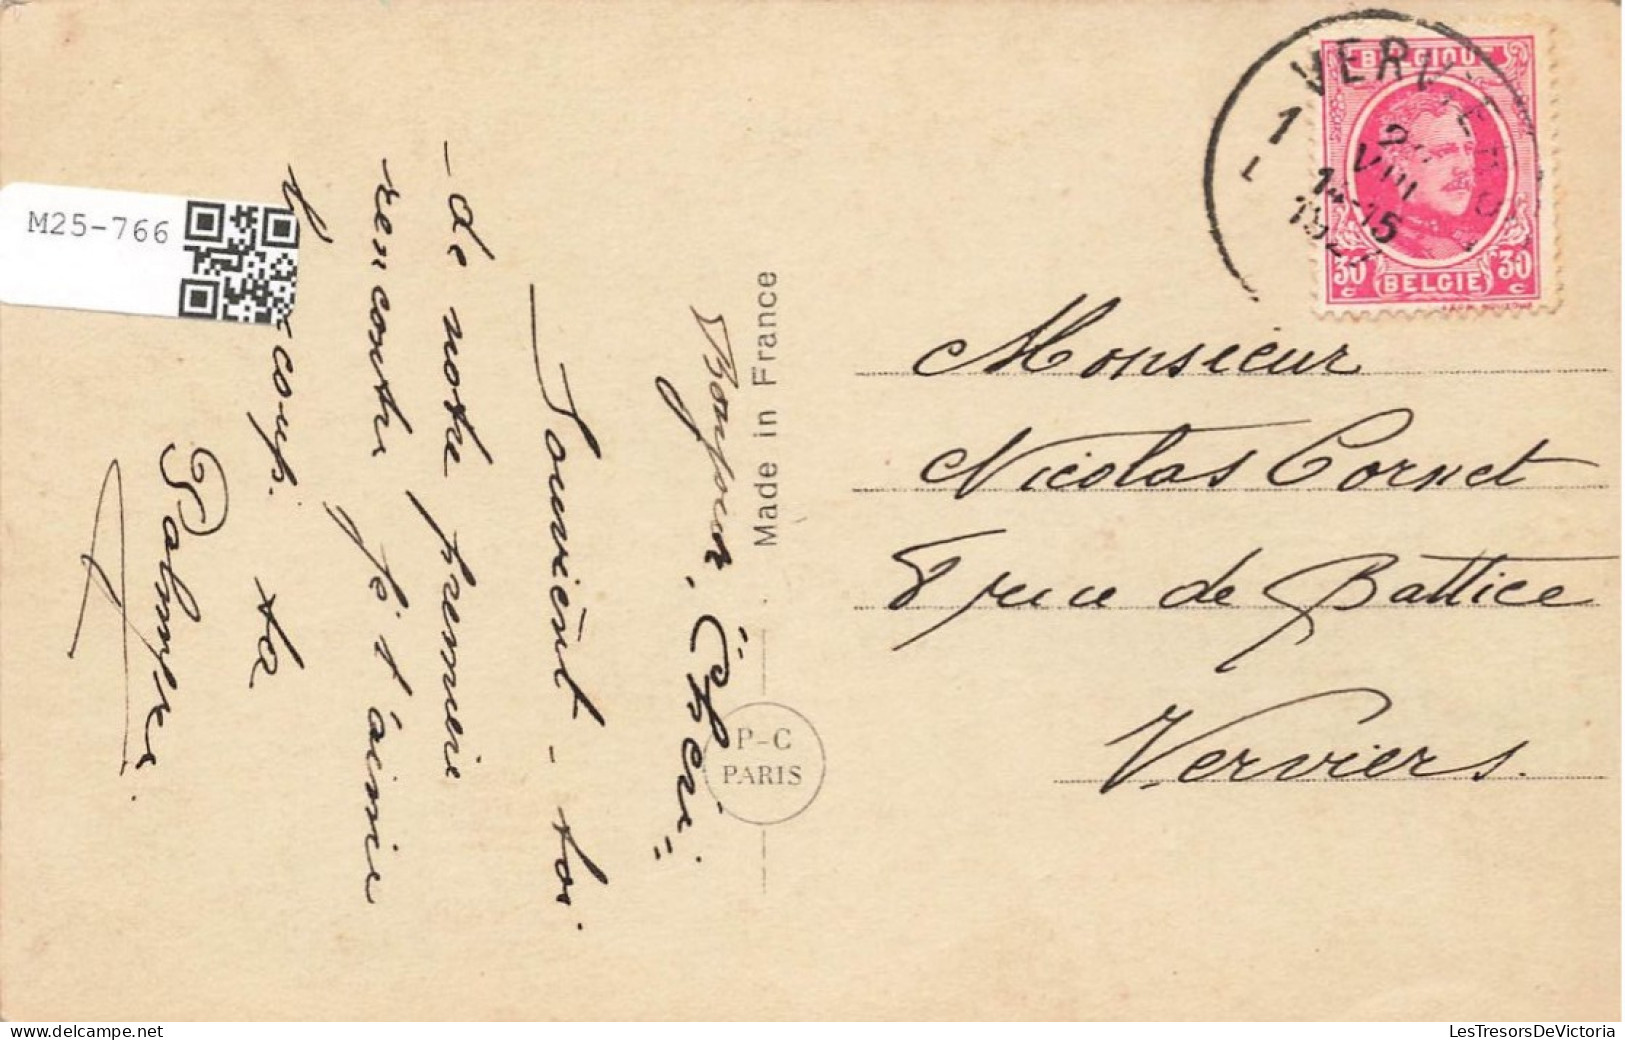 M25-766
Bonjour, "Chéri"
Souvient-toi
-de notre premier
rencontre je t'aime
coup. ta
Palmyre
Made in France
P-C
PARIS
VERVIERS
1
VIII
14-15
BELGIQUE
30 BELGIE 30
c c
Monsieur
Nicolas Cornet
8 rue de Battice
Verviers.
delcampe.net
LesTresorsDeVictoria